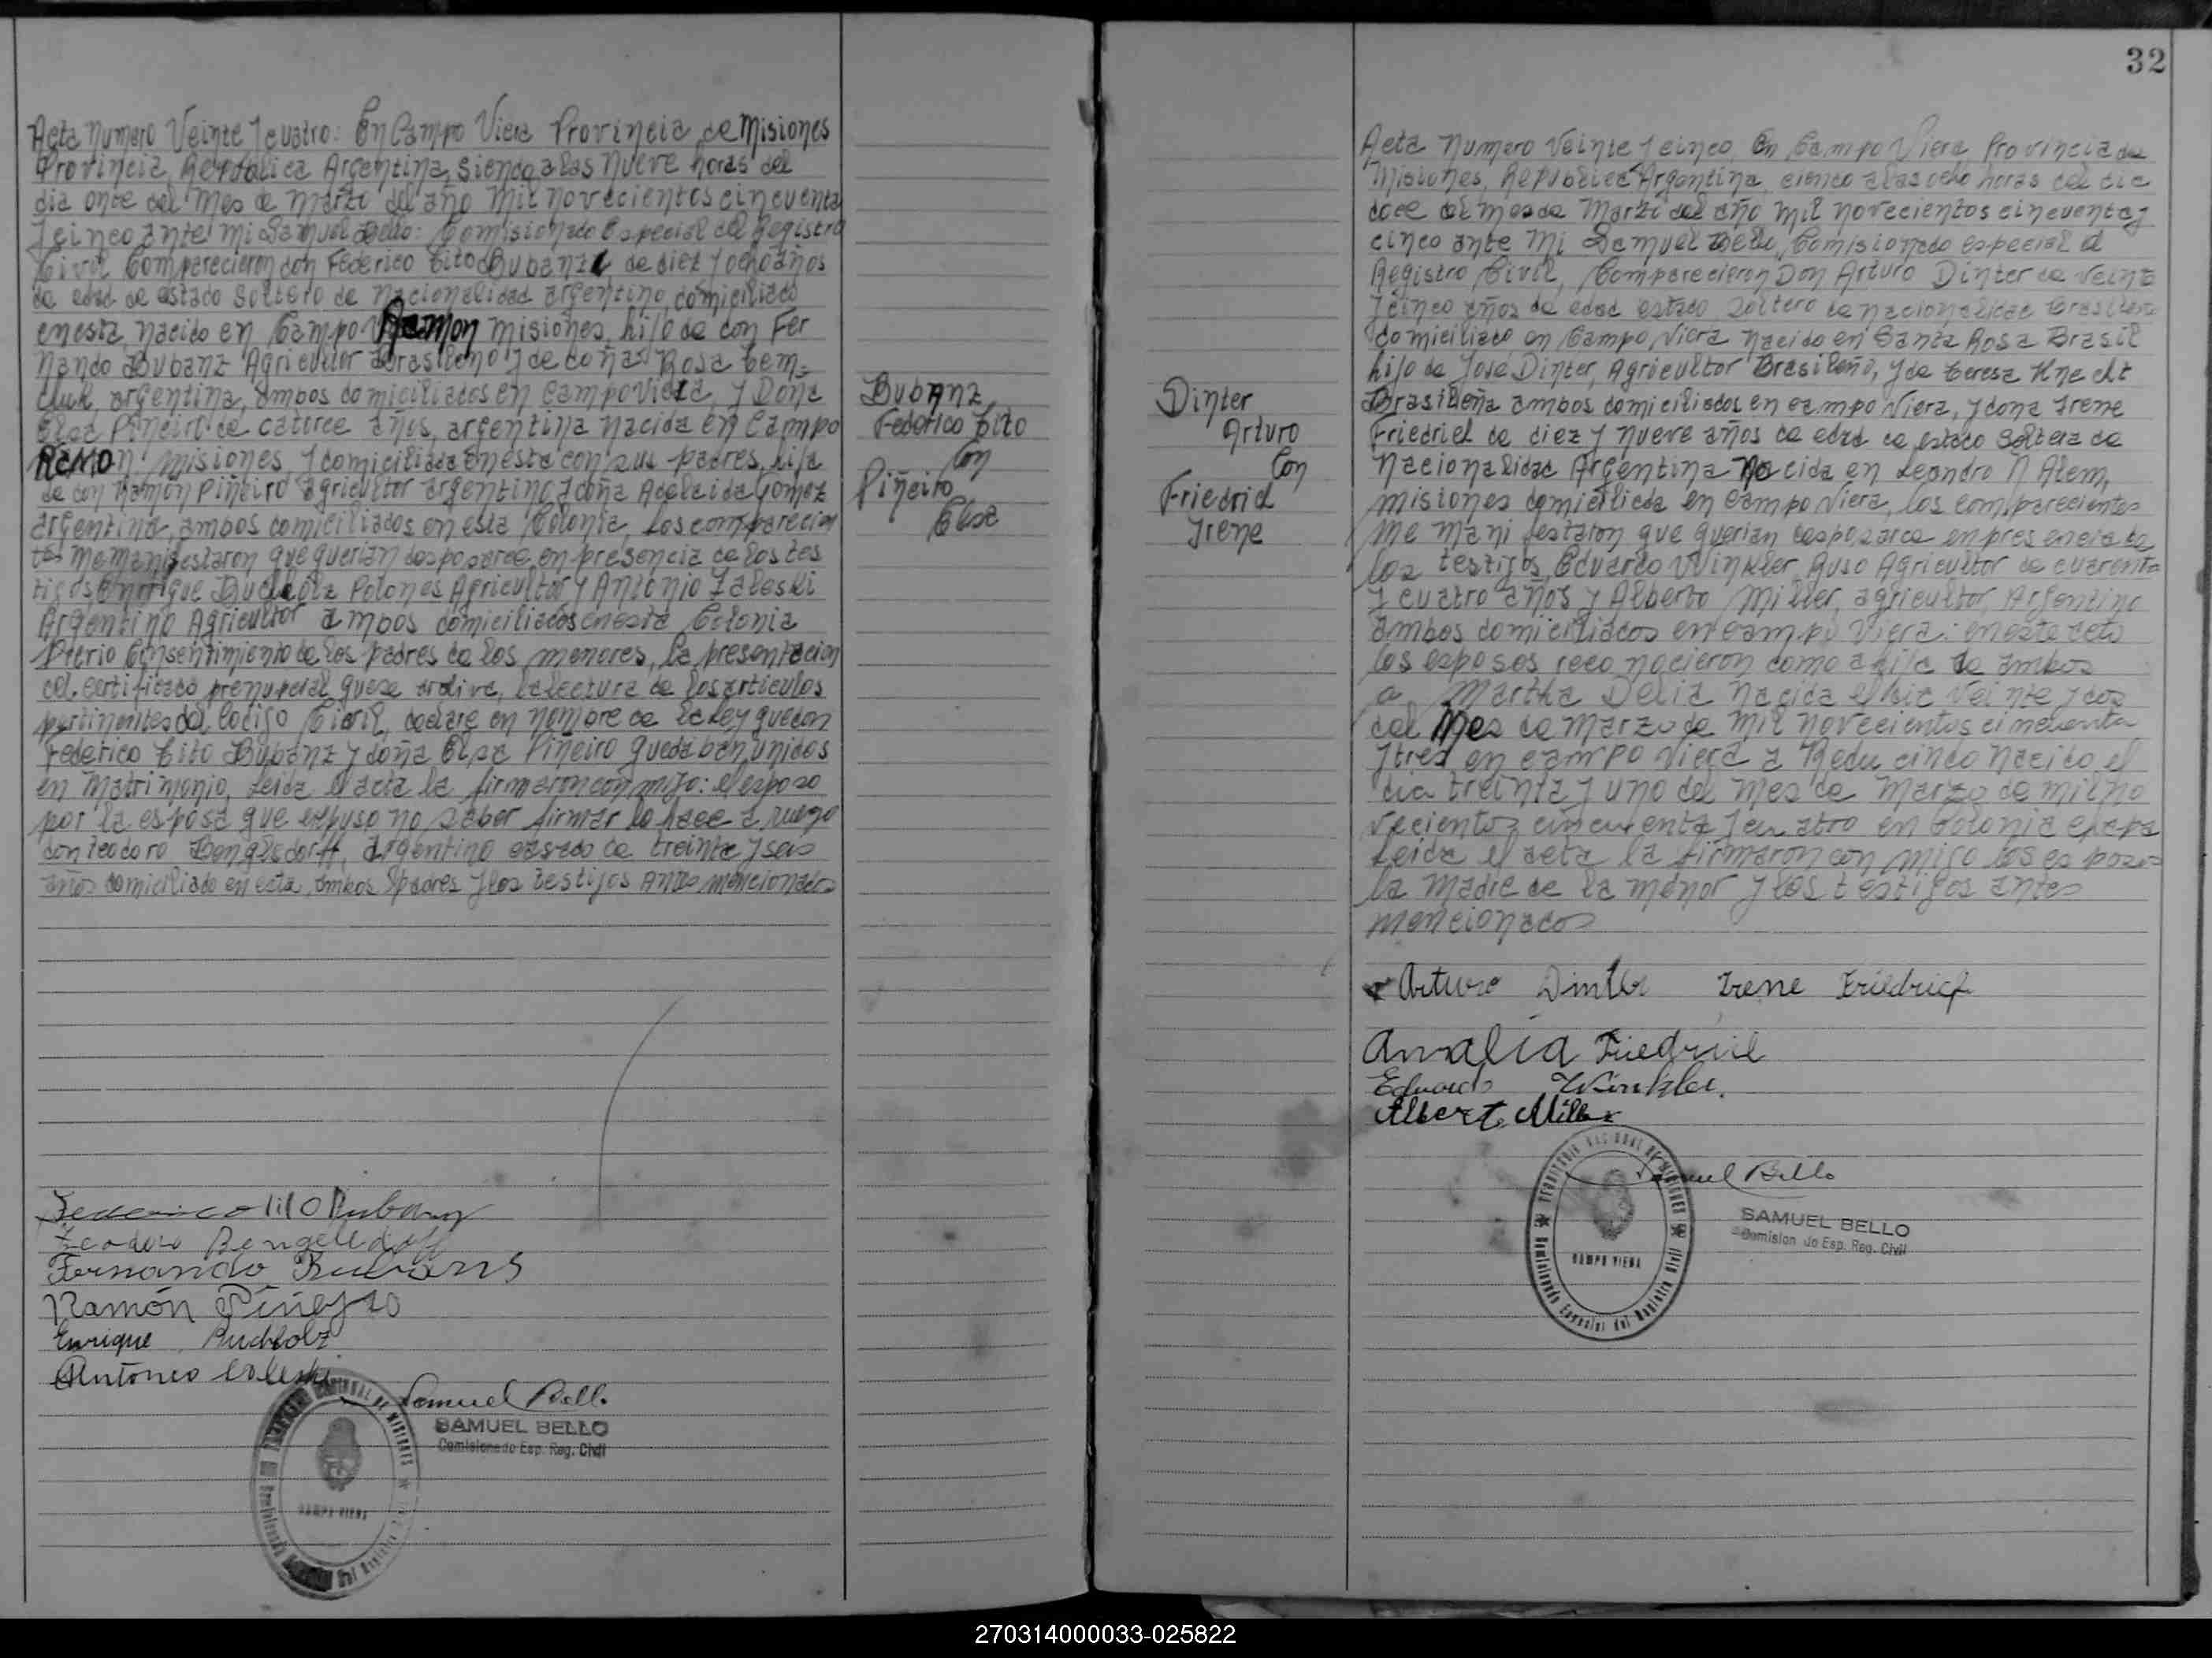 Acta Numero Veinte y cuatro: En Campo Viera Provincia de Misiones
Provincia, Republica Argentina, siendo a las nueve horas del
dia once del Mes de Marzo del año Mil novecientos cincuenta
y cinco ante mi Samuel Bello: Comisionado Especial del Registro
Civil Comparecieron don Federico Tito Bubanz de diez y ocho años
de edad de estado soltero de nacionalidad argentino domiciliado
en esta, nacido en Campo Ramon misiones, hijo de don Fer
nando Bubanz Agricultor Brasileño y de doña Rosa
argentina, ambos domiciliados en Campo Viera, y Dona
Elsa Piñeiro de catorce años, argentina nacida en Campo
Ramon misiones y domiciliada en esta con sus padres, hija
de don Ramón Piñeiro agricultor argentino y doña Adelaida Gomez
argentina, ambos domiciliados en esta Colonia, los comparecien
tes me manifestaron que querian desposarce en presencia de los tes
tigos, Enrique Bucholz Polones Agricultor y Antonio Zaleski
Argentino Agricultor ambos domiciliados en esta Colonia
Previo Consentimiento de los padres de los menores, la presentacion
del certificado prenupcial que se archiva, la lectura de los articulos
pertinentes del Codigo Civil, declare en nombre de la Ley que don
Federico Tito Bubanz y doña Elsa Piñeiro quedaban unidos
en Matrimonio, leida el acta la firmaron con migo: el esposo
por la esposa que expuso no saber firmar lo hace a ruego
don Teodoro Bengelsdorff, argentino casado de treinta y seis
años domiciliado en esta, ambos padres y los testigos antes mencionados
Bubanz
Federico Tito
Con
Piñeiro
Elsa
Federico Tito Bubanz
Teodoro
Fernando
Ramón Piñeyro
Enrique Buchholz
Antonio
Samuel Bello
SAMUEL BELLO
Comisionado Esp. Reg. Civil
NACIONAL DE MISIONES
CAMPO VIERA
32
Dinter
Arturo
Con
Friedrich
Irene
Acta Numero Veinte y cinco, En Campo Viera, Provincia de
Misiones, Republica Argentina, ciendo a las ocho horas del dia
doce del mes de Marzo del año mil novecientos cincuenta y
cinco ante Mi Samuel Bello, Comisionado especial del
Registro Civil, Comparecieron Don Arturo Dinter de Veinte
y cinco años de edad estado Soltero de nacionalidad Brasileño
domiciliado en Campo Viera nacido en Santa Rosa Brasil
hijo de José Dinter, Agricultor Brasileño, y de Teresa Knecht
Brasileña ambos domiciliados en campo Viera, y dona Irene
Friedrich de diez y nueve años de edad de estado Soltera de
nacionalidad Argentina Nacida en Leandro N Alem,
misiones domicilicda en campo Viera, los comparecientes
me manifestaron que querian desposarce en presencia de
los testigos, Eduardo Winkler, Ruso Agricultor de cuarenta
y cuatro años y Alberto Miller, agricultor, Argentino
ambos domiciliados en campo Viera: en este acto
los esposos reconocieron como a hija de ambos
a Martha Delia nacida el dia veinte y dos
del Mes de Marzo de mil novecientos cincuenta
y tres en campo Viera a nacido el
dia treinta y uno del mes de Marzo de mil no
vecientos cincuenta y cuatro en Colonia
Leida el acta la firmaron con migo los esposos
la Madre de la menor y los testigos antes
mencionados
Arturo Dinter Irene Friedrich
Amalia Friedrich
Eduardo Winkler.
Alberto Miller
Samuel Bello
SAMUEL BELLO
Comision do Esp. Reg. Civil
CAMPO VIERA
270314000033-025822